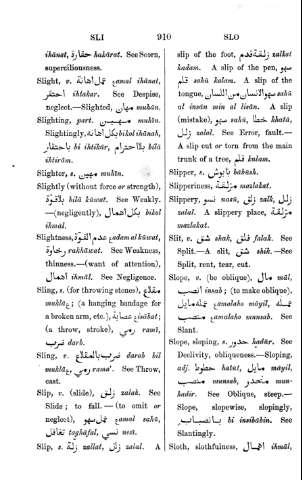 SLI 910 SLO
ihánat, حقارة hakárat. See Scorn,
superciliousness.
Slight, v. عمل اهانة ạamal ihánat,
احتقر ihtakar. See Despise,
neglect.—Slighted, مهان muhán.
Slighting, part. مهين muhín.
Slightingly, بكل اهانة bikol ihánah,
باحتقار bi ihtikár, بلا احترام bilá
ihtirám.
Slighter, s. مهين muhín.
Slightly (without force or strength),
بلا قوّة bilá kúwat. See Weakly.
—(negligently), بكل اهمال bikol
ihmál.
Slightness, عدم القوّة ạadam al kúwat,
رخاوة rakháwat. See Weakness,
thinness.—(want of attention),
اهمال ihmál. See Negligence.
Sling, s. (for throwing stones), مقلاع
muklạ; (a hanging bandage for
a broken arm, etc.), عصابة ạisábat;
(a throw, stroke), رمي ramí,
ضرب darb.
Sling, v. ضرب بالمقلاع darab bil
muklạ, رمى rama'. See Throw,
cast.
Slip, v. (slide), زلق zalak. See
Slide; to fall. — (to omit or
neglect), عمل سهو ạamal sahú,
تغافل togháfal, نسي nesí.
Slip, s. زلة zallat, زلل zalal. A
slip of the foot, زلقة قدم zalkat
kadam. A slip of the pen, سهو
قلم sahú kalam. A slip of the
tongue, سهو الانسان من اللسان sahú
al insán min al lisán. A slip
(mistake), سهو sahú, خطا khátá,
زلل zalal. See Error, fault.—
A slip cut or torn from the main
trunk of a tree, قلم kalam.
Slipper, s. بابوش bábúsh.
Slipperiness, مزلقة mazlakat.
Slippery, نسو nasú, زلق zalk, زلل
zalal. A slippery place, مزلقة
mazlakat.
Slit, v. شق shak, فلق falak. See
Split.—A slit, شق shik.—See
Split, rent, tear, cut.
Slope, v. (be oblique), مال mál,
انصب insab; (to make oblique),
عمله مايل ạamalaho máyil, عمله
منصب ạamalaho munsab. See
Slant.
Slope, sloping, s. حدور hadúr. See
Declivity, obliqueness.—Sloping,
adj. حطوط hatút, مايل máyil,
منصب munsab, منحدر mun-
hadir. See Oblique, steep.—
Slope, slopewise, slopingly,
بانصباب bi insibábin. See
Slantingly.
Sloth, slothfulness, اهمال ihmál,